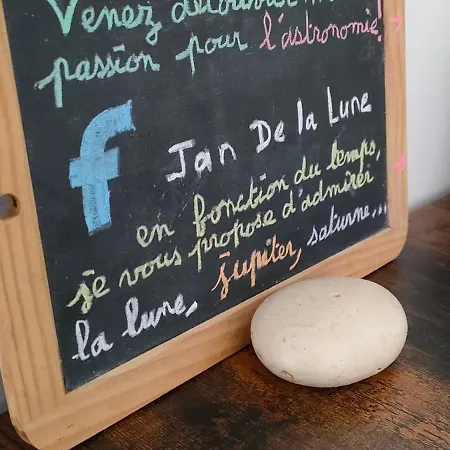 Venez découvrir
passion pour l'astronomie!
f
Jan De la Lune
en fonction du temps,
je vous propose d'admirer
la lune, jupiter, saturne...